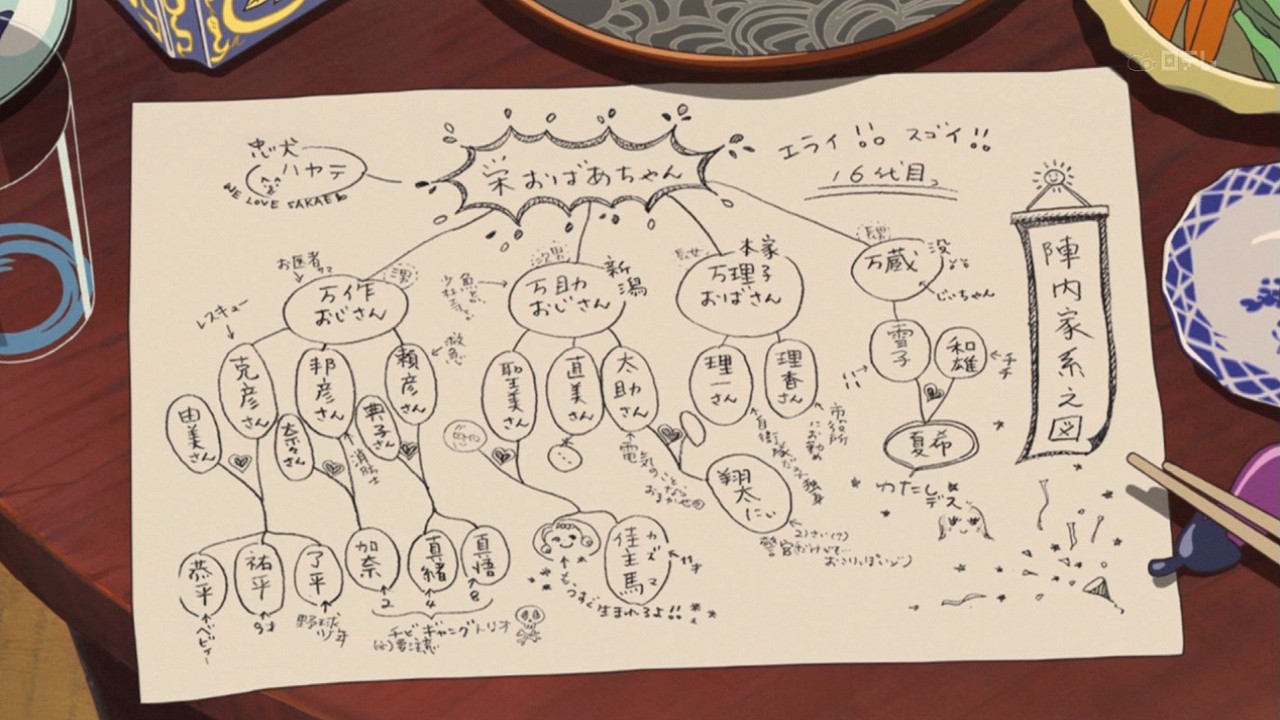 忠犬
ハヤテ
WE LOVE SAKAE
栄おばあちゃん
エライ!! スゴイ!!
16代目。
陣内家系之図
お医者
次男
万作
おじさん
新潟
万助
おじさん
本家
長女
万理子
おばさん
長男
万蔵
没
じいちゃん
レスキュー
克彦さん
邦彦さん
頼彦さん
救急
由美さん
奈々さん
典子さん
消防士
聖美さん
直美さん
太助さん
電気のこと
理一さん
自衛隊
独身
理香さん
市役所
にお勤め
雪子
和雄
チチ
ハハ
夏希
わたし
デス
翔太
にい
21さい(?)
警官だけど
おこりっぽい
恭平
ベビィー
祐平
9才
了平
野球
少年
加奈
2
真緒
4
真悟
8
チビギャングトリオ
要注意
もうすぐ生まれるよ!!
佳主馬
カズマ